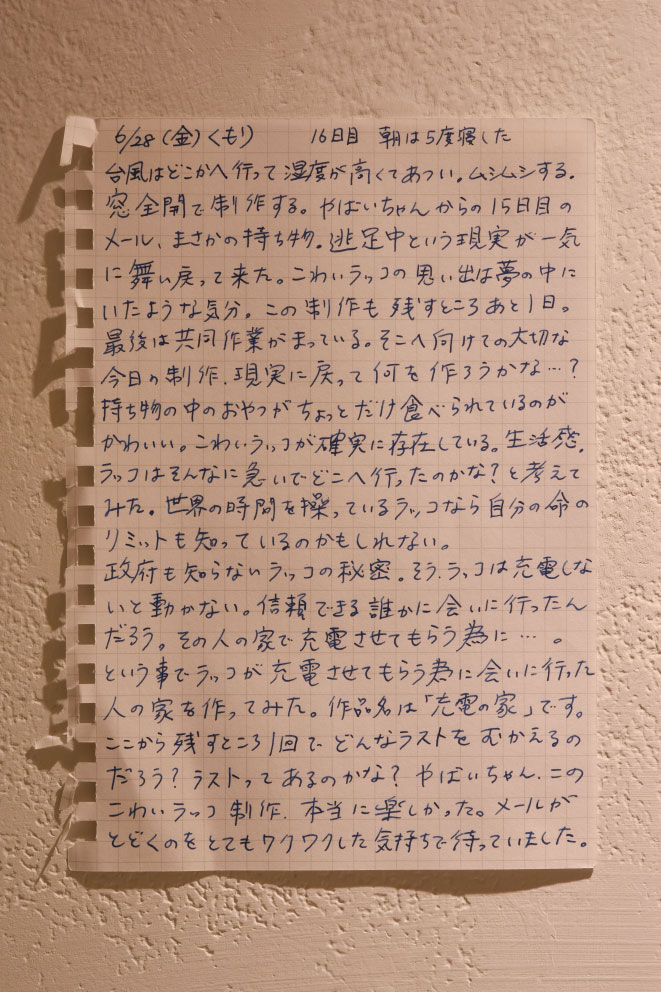 6/28(金)くもり 16日目 朝は5度寝した
台風はどこかへ行って湿度が高くてあつい。ムシムシする。
窓全開で制作する。やばいちゃんからの15日目の
メール、まさかの持ち物。逃足中という現実が一気
に舞い戻って来た。こわいラッコの思い出は夢の中に
いたような気分。この制作も残すところあと1日。
最後は共同作業がまっている。そこへ向けての大切な
今日の制作、現実に戻って何を作ろうかな…?
持ち物の中のおやつがちょっとだけ食べられているのが
かわいい。こわいラッコが確実に存在している。生活感。
ラッコはそんなに急いでどこへ行ったのかな?と考えて
みた。世界の時間を操っているラッコなら自分の命の
リミットも知っているのかもしれない。
政府も知らないラッコの秘密。そう、ラッコは充電しな
いと動かない。信頼できる誰かに会いに行ったん
だろう。その人の家で充電させてもらう為に…。
という事でラッコが充電させてもらう為に会いに行った
人の家を作ってみた。作品名は「充電の家」です。
ここから残すところ1回で、どんなラストをむかえるの
だろう?ラストってあるのかな?やばいちゃん、この
こわいラッコ制作、本当に楽しかった。メールが
とどくのをとてもワクワクした気持ちで待っていました。